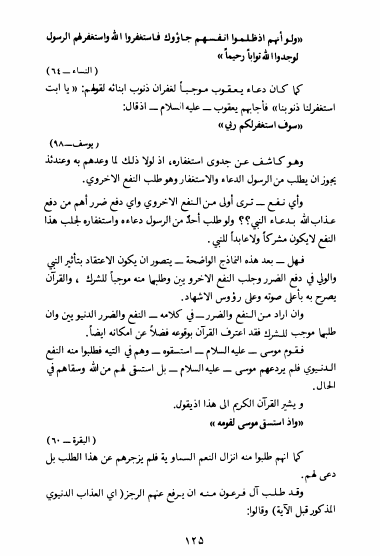 «ولو أنهم اذظلموا انفسهم جاؤوك فاستغفروا الله واستغفرلهم الرسول
لوجدوا الله تواباً رحيماً»
(النساء ــ ٦٤)
كما كان دعاء يعقوب موجباً لغفران ذنوب ابنائه لقولهم: «يا ابت
استغفرلنا ذنوبنا» فأجابهم يعقوب ــ عليه السلام ــ اذقال:
«سوف استغفرلكم ربي»
(يوسف ــ ٩٨)
وهو كاشف عن جدوى استغفاره، اذ لولا ذلك لما وعدهم به وعندئذ
يجوز ان يطلب من الرسول الدعاء والاستغفار وهو طلب النفع الاخروي.
وأي نفع ــ ترى أولى من النفع الاخروي واي دفع ضرر أهم من دفع
عذاب الله بدعاء النبي؟؟ ولو طلب أحدٌ من الرسول دعاءه واستغفاره لجلب هذا
النفع لايكون مشركاً ولاعابداً للنبي.
فهل ــ بعد هذه النماذج الواضحة ــ يتصور ان يكون الاعتقاد بتأثير النبي
والولي في دفع الضرر وجلب النفع الاخرويين وطلبها منه موجباً للشرك ، والقرآن
يصرح به بأعلى صوته وعلى رؤوس الاشهاد.
وان اراد من النفع والضرر ــ في كلامه ــ النفع والضرر الدنيويين وان
طلبها موجب للشرك فقد اعترف القرآن بوقوعه فضلاً عن امكانه ايضاً.
فقوم موسى ــ عليه السلام ــ استسقوه ــ وهم في التيه فطلبوا منه النفع
الدنيوي فلم يردعهم موسى ــ عليه السلام ــ بل استسقى لهم من الله وسقاهم في
الحال.
و يشير القرآن الكريم الى هذا اذيقول.
«واذ استسقى موسى لقومه»
(البقرة ــ ٦٠)
كما انهم طلبوا منه انزال النعم السماوية فلم يزجرهم عن هذا الطلب بل
دعى لهم.
وقد طلب آل فرعون منه ان يرفع عنهم الرجز (اي العذاب الدنيوي
المذكور قبل الآية) وقالوا:
١٢٥